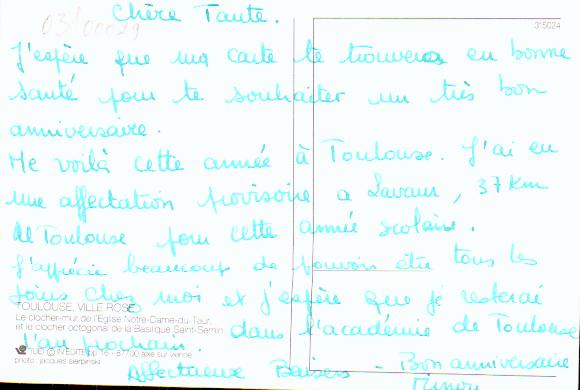 Chère Tante.
03'00029
315024
J'espère que ma carte te trouvera en bonne
santé pour te souhaiter un très bon
anniversaire.
Me voilà cette année à Toulouse. J'ai eu
une affectation provisoire a Lavaur, 37 km
de Toulouse pour cette année scolaire.
J'apprécie beaucoup de pouvoir être tous les
soirs chez moi et j'espère que je resterai
dans l'académie de Toulouse
l'an prochain.
Affectueux Baisers - Bon anniversaire
TOULOUSE, VILLE ROSE
Le clocher-mur de l'Eglise Notre-Dame-du-Taur,
et le clocher octogonal de la Basilique Saint-Sernin
photo : jacques sierpinski